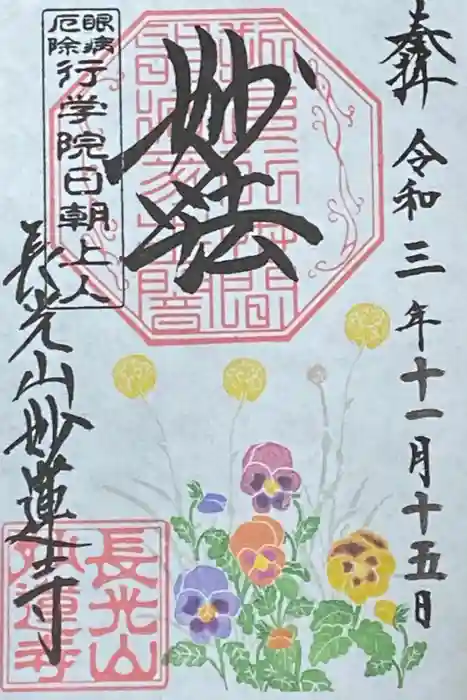 奉拝
令和三年十一月十五日
妙法
眼病
厄除
行学院日朝上人
長光山妙蓮寺
長光山
妙蓮寺